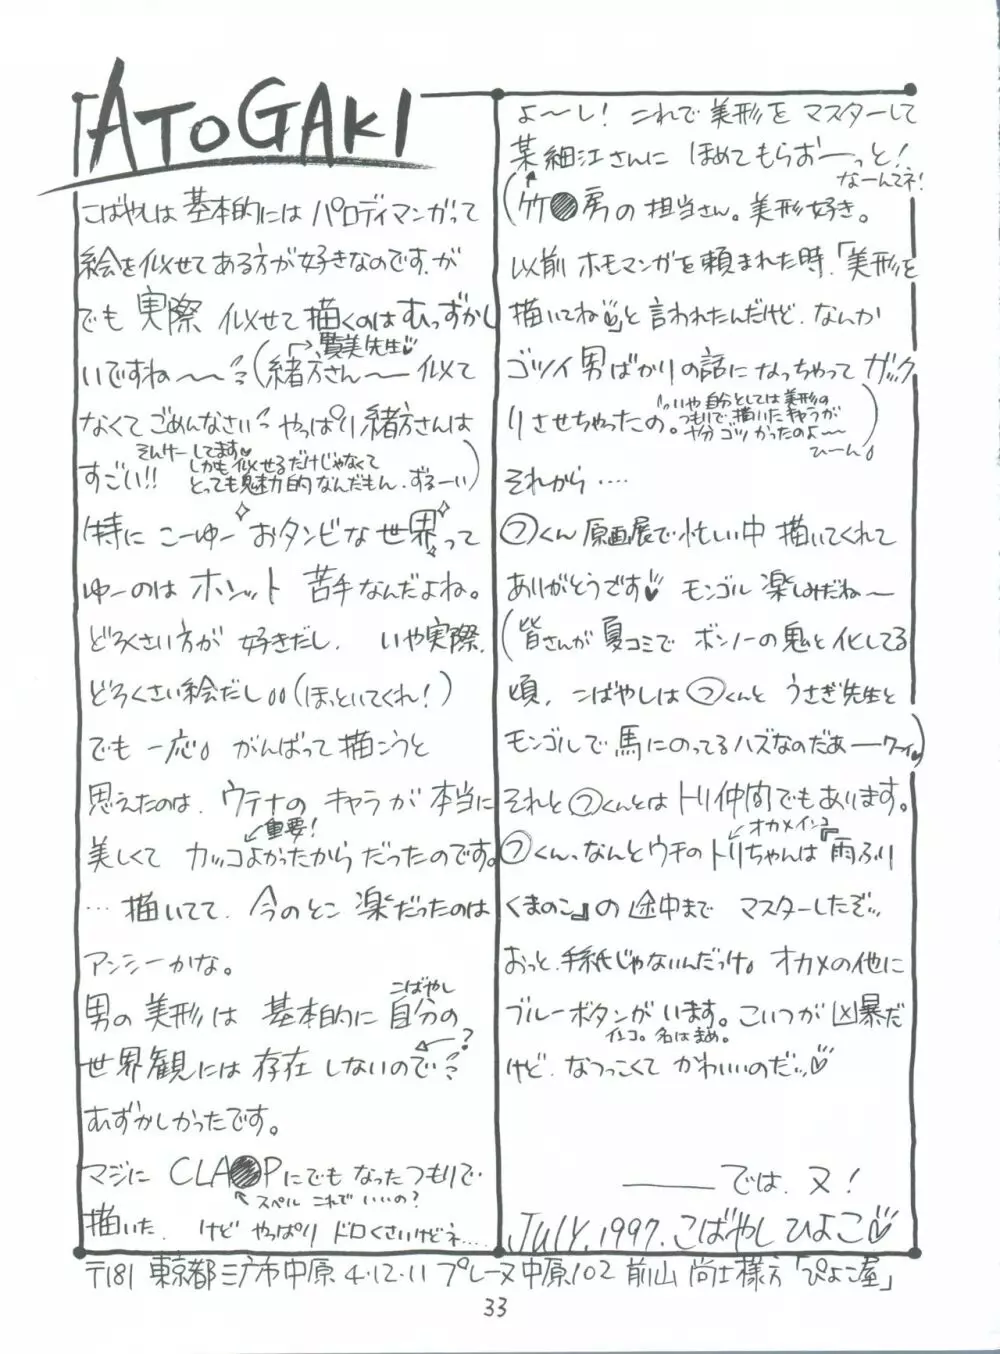 ATOGAKI
こばやしは基本的にはパロディマンガって
絵を似せてある方が好きなのです。が
でも実際 似せて描くのはむっずかし
いですね〜〜 (緒方さん〜〜似て
賢美先生♡
なくてごめんなさい やっぱり緒方さんは
そんけーしてます♡
すごい!! しかも似せるだけじゃなくて
とっても魅力的なんだもん。ずるーい)
特に こーゆー おタンビな世界って
ゆーのは ホンット 苦手なんだよね。
どろくさい方が 好きだし、 いや実際、
どろくさい絵だし。。(ほっといてくれ!)
でも 一応。がんばって描こうと
思えたのは、ウテナの キャラが本当に
重要!
美しくて カッコよかったからだったのです。
…描いてて、今のとこ 楽だったのは
アンシーかな。
男の美形は 基本的に自分の
こばやし
世界観には存在 しないので
?
むずかしかったです。
マジに CLA●Pにでも なったつもりで
スペル これで いいの?
描いた。 けど やっぱり ドロくさいけどネ....
よ〜〜し! これで 美形を マスターして
某細江さんに ほめてもらおーっと!
なーんてネ!
(竹●房の担当さん。美形好き。
以前 ホモマンガを頼まれた時、「美形を
描いてね♡」と言われたんだけど、なんか
ゴツイ男ばかりの話に なっちゃって ガック
リさせちゃったの。 いや自分としては美形の
つもりで描いたキャラが
十分ゴツかったのよ〜
ひーん。)
それから‥‥
㋡くん 原画展で忙しい中 描いてくれて
ありがとうです♡ モンゴル 楽しみだね〜
(皆さんが夏コミで ボンノーの鬼と化してる
頃、こばやしは㋡くんと うさぎ先生と
モンゴルで馬にのってるハズなのだあーワーイ♡)
それと㋡くんとは トリ仲間でもあります。
オカメインコ
㋡くん、なんとウチのトリちゃんは『雨ふり
くまのこ』の途中まで マスターしたぞ…
おっと、手紙じゃないんだっけ。オカメの他に
ブルーボタンがいます。こいつが凶暴だ
インコ。名はまめ。
けど、なつっこくて かわいいのだ…♡
――では、又!
JULY.1997.こばやしひよこ♡
〒181 東京都三戸市中原4-12-11 プレーヌ中原102 前山尚士様方「ぴよこ屋」
33